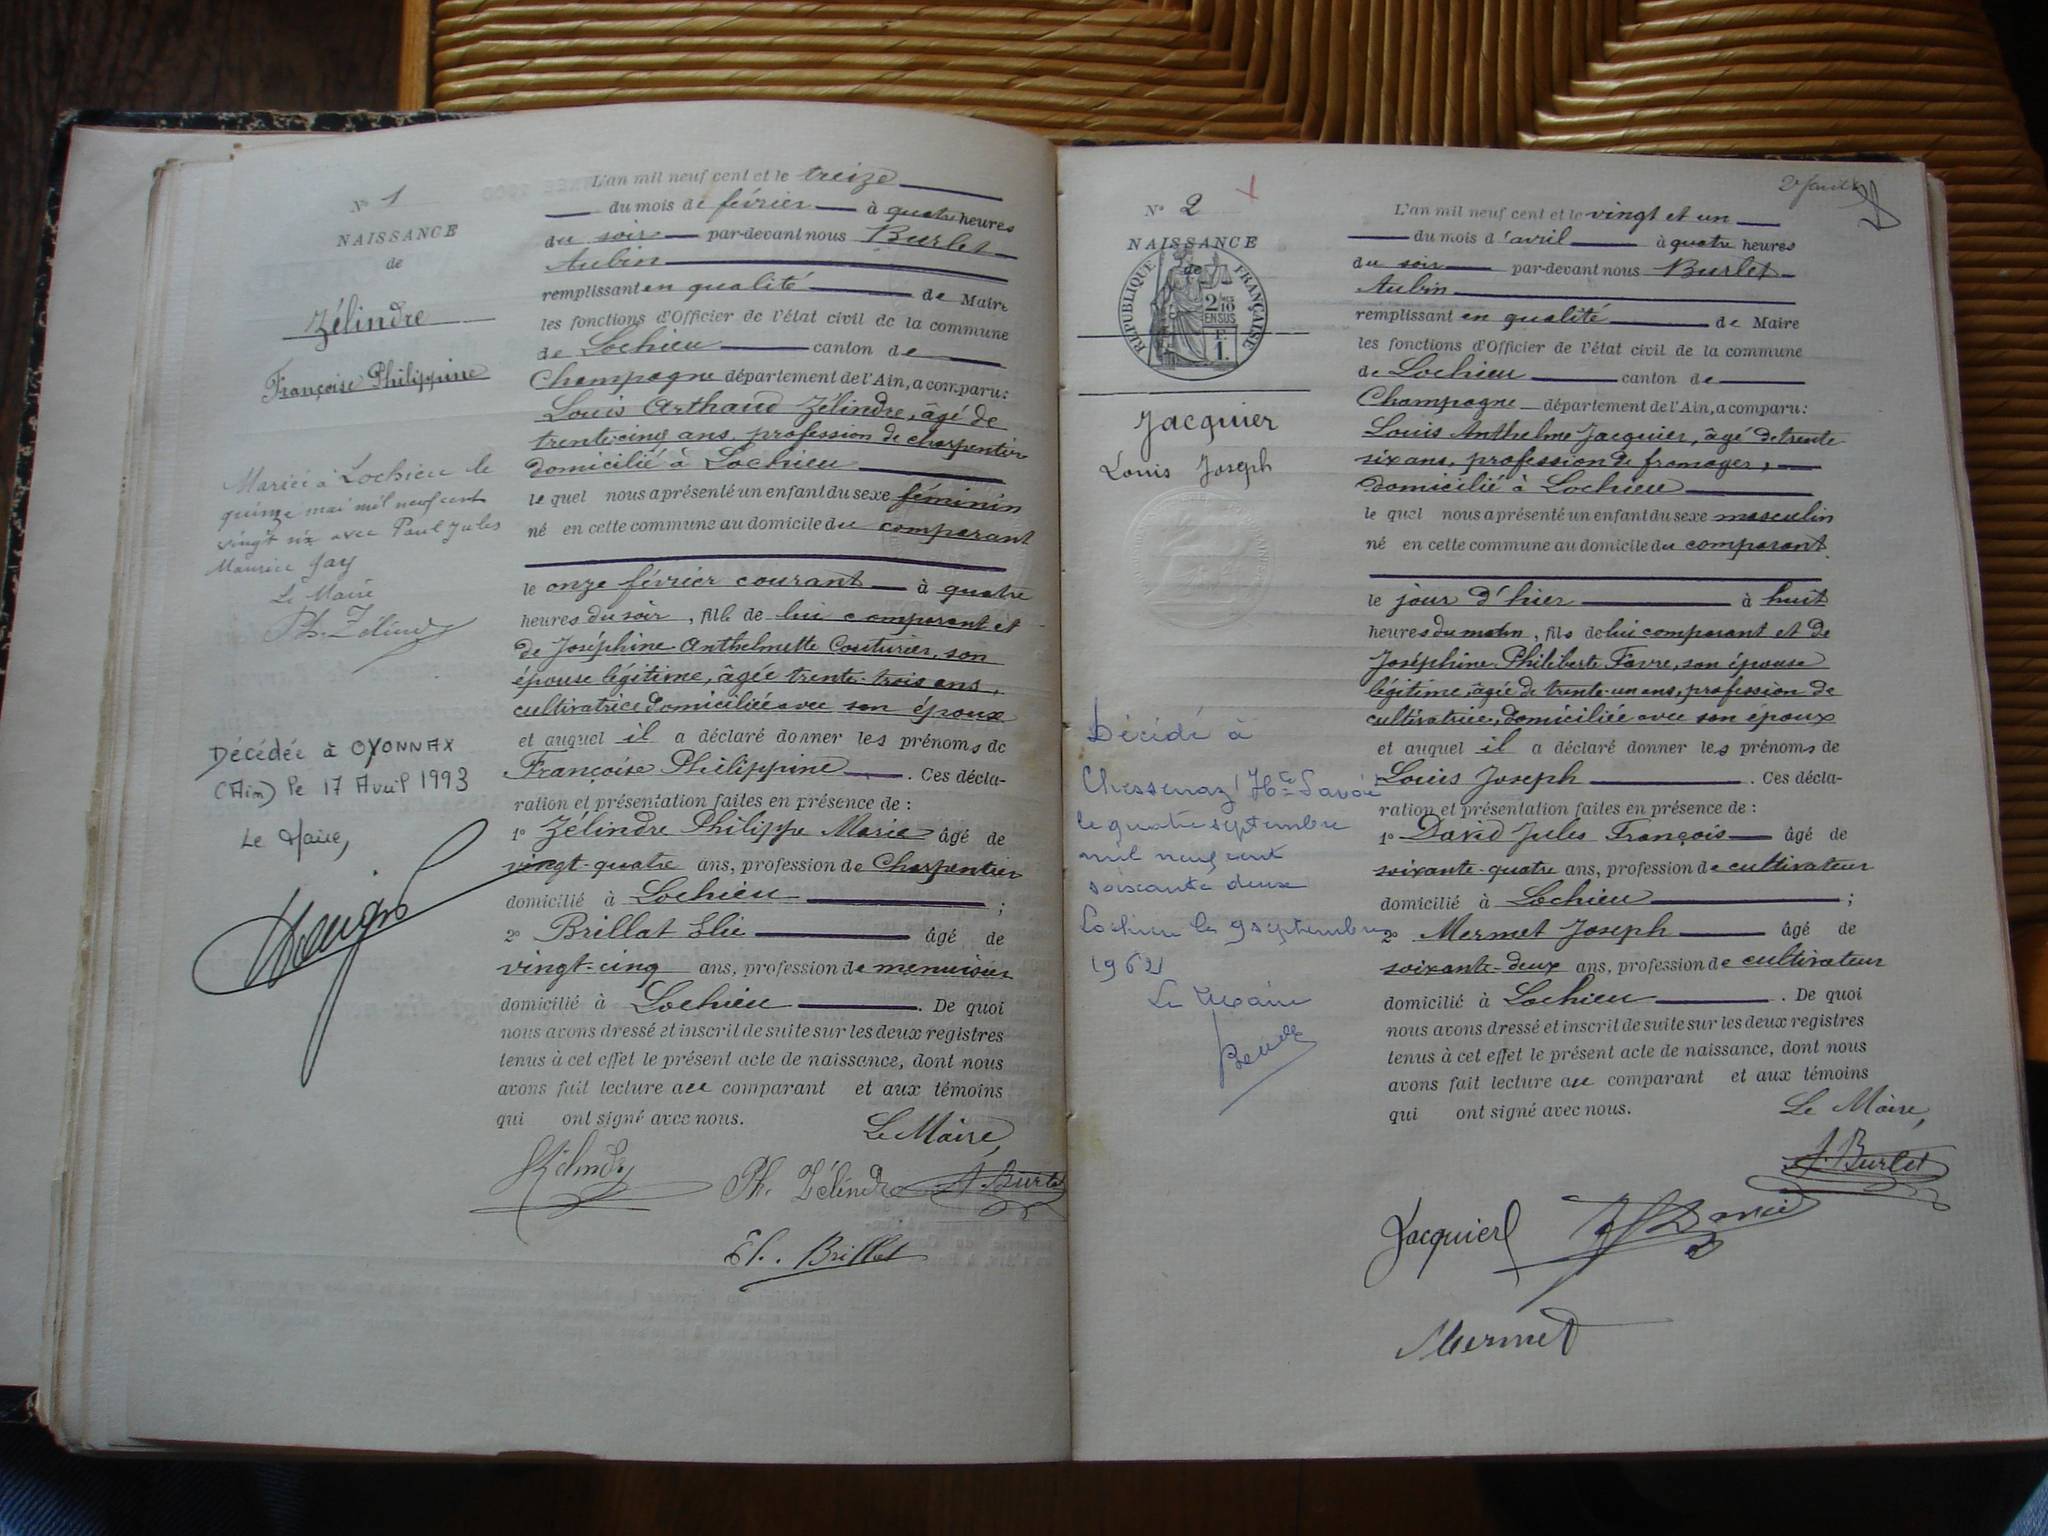 N° 1
NAISSANCE
de
Zélindre
Françoise Philippine
Mariée à Lochieu le
quinze mai mil neuf cent
vingt six avec Paul Jules
Maurice Jay
Le Maire
Ph. Zélindre
Décédée à OYONNAX
(Ain) le 17 Avril 1993
Le Maire,
L'an mil neuf cent et le treize
du mois de février à quatre heures
du soir par-devant nous Burlet
Aubin
remplissant en qualité de Maire
les fonctions d'Officier de l'état civil de la commune
de Lochieu canton de
Champagne département de l'Ain, a comparu:
Louis Arthaud Zélindre, âgé de
trente-cinq ans, profession de charpentier
domicilié à Lochieu
le quel nous a présenté un enfant du sexe féminin
né en cette commune au domicile du comparant
le onze février courant à quatre
heures du soir, fille de lui comparant et
de Joséphine Anthelmette Couturier, son
épouse légitime, âgée trente-trois ans,
cultivatrice domiciliée avec son époux
et auquel il a déclaré donner les prénoms de
Françoise Philippine. Ces décla-
ration et présentation faites en présence de :
1° Zélindre Philippe Marie âgé de
vingt-quatre ans, profession de Charpentier
domicilié à Lochieu ;
2° Brillat Elie âgé de
vingt-cinq ans, profession de menuisier
domicilié à Lochieu. De quoi
nous avons dressé et inscrit de suite sur les deux registres
tenus à cet effet le présent acte de naissance, dont nous
avons fait lecture au comparant et aux témoins
qui ont signé avec nous.
Le Maire,
Zélindre
Ph. Zélindre A. Burlet
El. Brillat
2e feuillet
N° 2
NAISSANCE
de
RÉPUBLIQUE FRANÇAISE
2/10
EN SUS
F.
1.
Jacquier
Louis Joseph
Décédé à
Chessenaz Hte Savoie
le quatre septembre
mil neuf cent
soixante deux
Lochieu le 9 septembre
1962
Le Maire
L'an mil neuf cent et le vingt et un
du mois d'avril à quatre heures
du soir par-devant nous Burlet
Aubin
remplissant en qualité de Maire
les fonctions d'Officier de l'état civil de la commune
de Lochieu canton de
Champagne département de l'Ain, a comparu:
Louis Anthelme Jacquier, âgé de trente
six ans, profession de fromager,
domicilié à Lochieu
le quel nous a présenté un enfant du sexe masculin
né en cette commune au domicile du comparant
le jour d'hier à huit
heures du matin, fils de lui comparant et de
Joséphine Philiberte Favre, son épouse
légitime, âgée de trente-un ans, profession de
cultivatrice, domiciliée avec son époux
et auquel il a déclaré donner les prénoms de
Louis Joseph. Ces décla-
ration et présentation faites en présence de :
1° David Jules François âgé de
soixante-quatre ans, profession de cultivateur
domicilié à Lochieu ;
2° Mermet Joseph âgé de
soixante-deux ans, profession de cultivateur
domicilié à Lochieu. De quoi
nous avons dressé et inscrit de suite sur les deux registres
tenus à cet effet le présent acte de naissance, dont nous
avons fait lecture au comparant et aux témoins
qui ont signé avec nous.
Le Maire,
A. Burlet
Jacquier David
Mermet